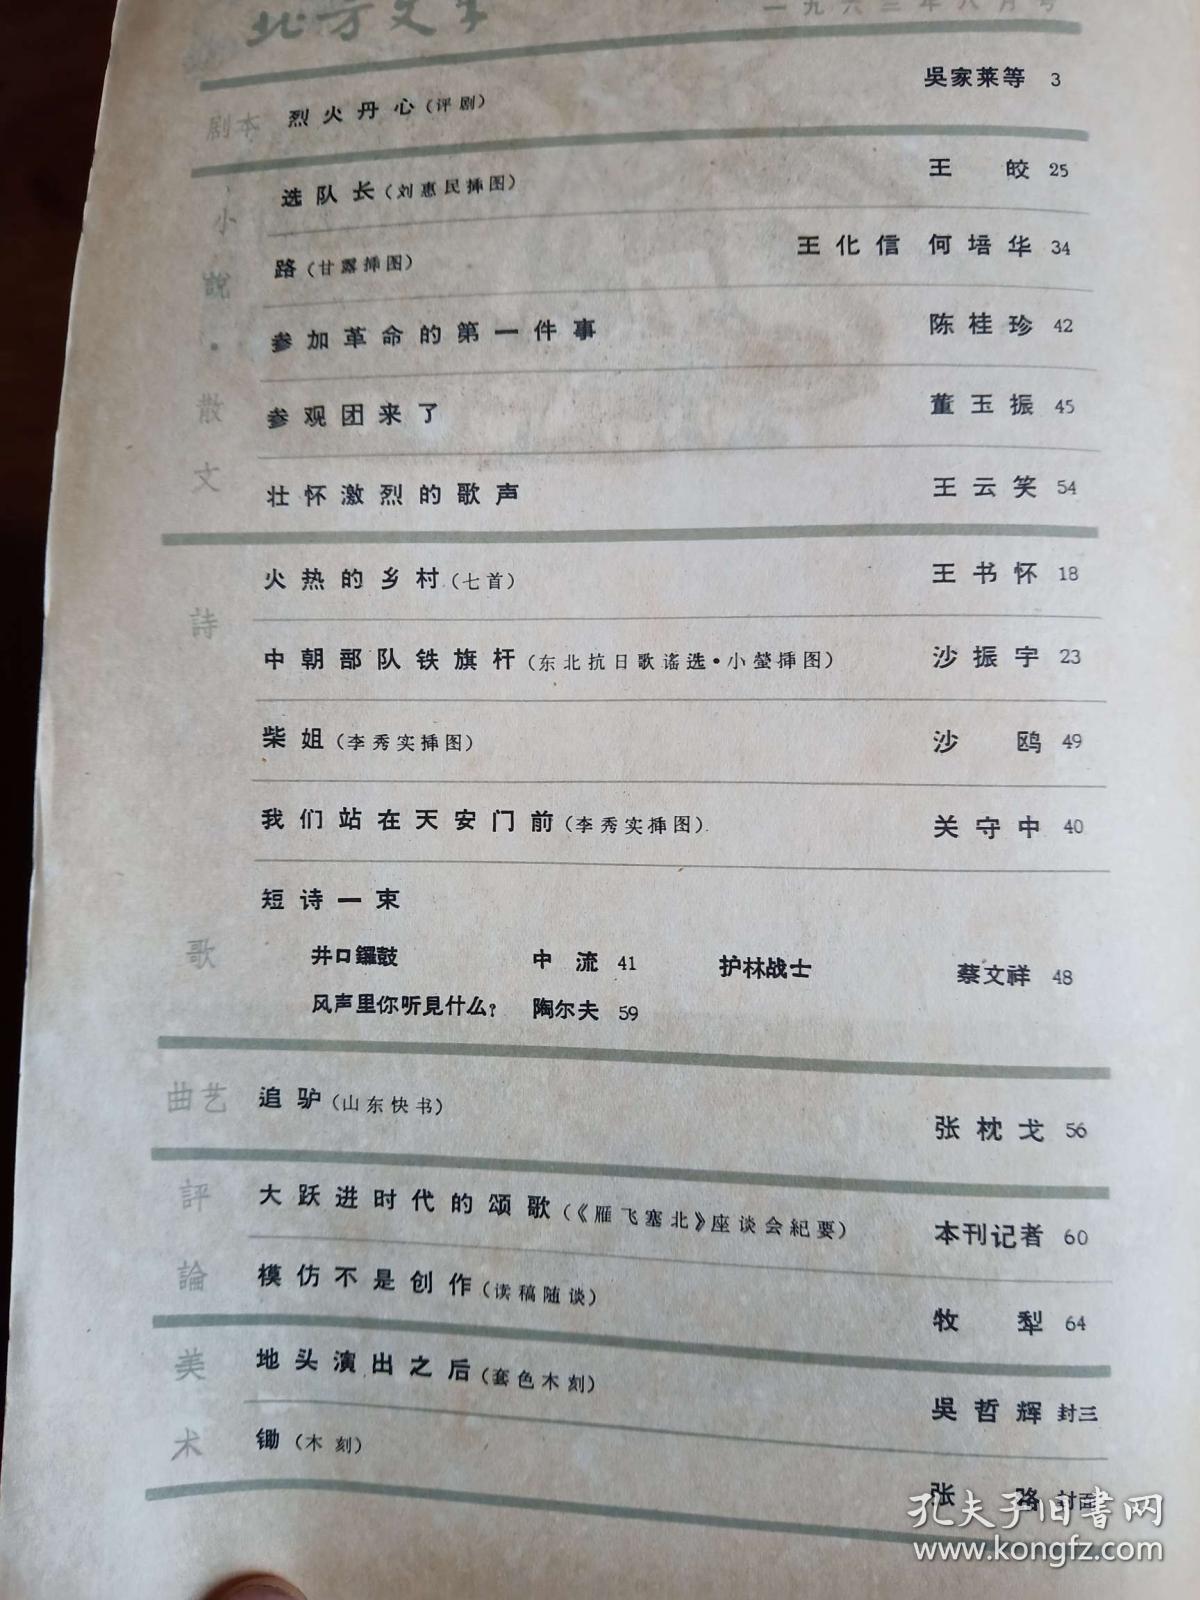 北方文学 一九六三年八月号
剧本 烈火丹心(评剧) 吳家莱等 3
小說·散文
选队长(刘惠民揷图) 王皎 25
路(甘露揷图) 王化信 何培华 34
参加革命的第一件事 陈桂珍 42
参观团来了 董玉振 45
壮怀激烈的歌声 王云笑 54
詩歌
火热的乡村(七首) 王书怀 18
中朝部队铁旗杆(东北抗日歌谣选·小瑩揷图) 沙振宇 23
柴姐(李秀实揷图) 沙鸥 49
我们站在天安门前(李秀实揷图) 关守中 40
短诗一束
井口鑼鼓 中流 41 护林战士 蔡文祥 48
风声里你听見什么? 陶尔夫 59
曲艺 追驴(山东快书) 张枕戈 56
評論
大跃进时代的颂歌(《雁飞塞北》座谈会紀要) 本刊记者 60
模仿不是创作(读稿随谈) 牧犁 64
美术
地头演出之后(套色木刻) 吳哲辉 封三
锄(木刻) 张路 封面
孔夫子旧書网
www.kongfz.com